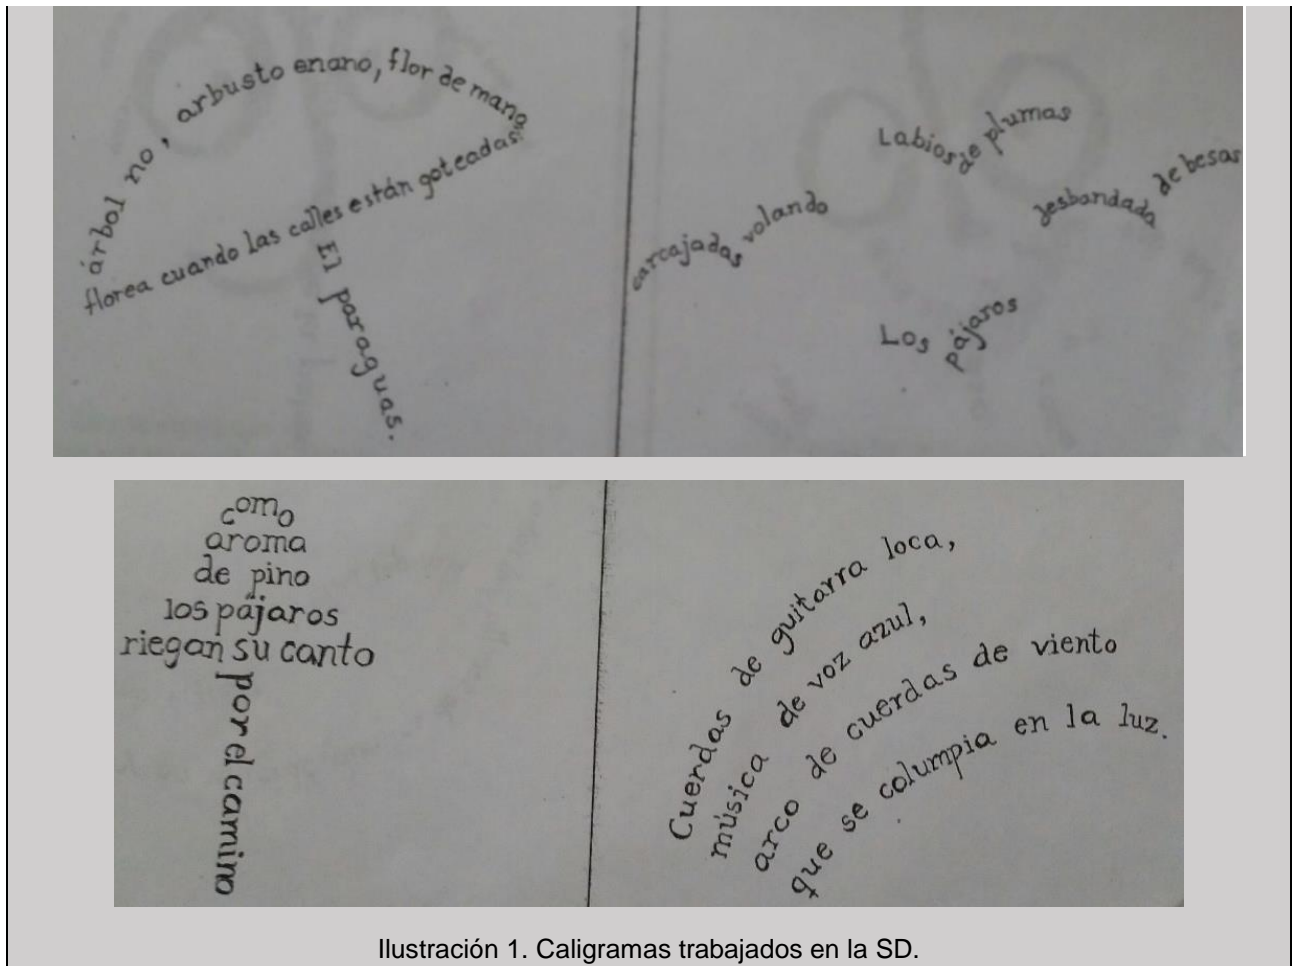 árbol no, arbusto enano, flor de mano
florea cuando las calles están goteadas:
El paraguas.
Labios de plumas
carcajadas volando
desbandada de besos
Los pájaros
como
aroma
de pino
los pájaros
riegan su canto
por el camino
Cuerdas de guitarra loca,
música de voz azul,
arco de cuerdas de viento
que se columpia en la luz.
Ilustración 1. Caligramas trabajados en la SD.